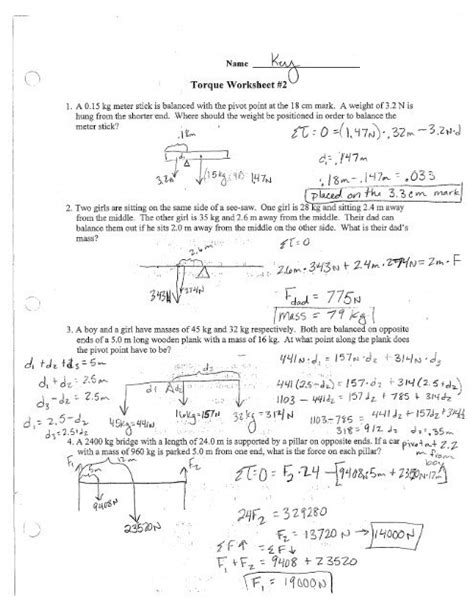 Name Key
Torque Worksheet #2
1. A 0.15 kg meter stick is balanced with the pivot point at the 18 cm mark. A weight of 3.2 N is
hung from the shorter end. Where should the weight be positioned in order to balance the
meter stick?
.18m
Στ=0=(1.47N)·.32m - 3.2N·d
d₁=.147m
3.2N
(.15kg)(9.8) 1.47N
.18m-.147m = .033
placed on the 3.3cm mark
2. Two girls are sitting on the same side of a see-saw. One girl is 28 kg and sitting 2.4 m away
from the middle. The other girl is 35 kg and 2.6 m away from the middle. Their dad can
balance them out if he sits 2.0 m away from the middle on the other side. What is their dad's
mass?
Στ=0
2.6m
2.6m·343N + 2.4m·274N = 2m·F
343N 274N
F dad = 775N
mass = 79 kg
3. A boy and a girl have masses of 45 kg and 32 kg respectively. Both are balanced on opposite
ends of a 5.0 m long wooden plank with a mass of 16 kg. At what point along the plank does
the pivot point have to be?
d₁+d₂+d₃=5m
d₃
441N·d₁ = 157N·d₂ + 314N·d₃
d₁+d₂=2.5m
d₁ d₂
441(2.5-d₂) = 157·d₂ + 314(2.5+d₂)
d₃-d₂=2.5m
1103-441d₂ = 157d₂ + 785 + 314d₂
d₁=2.5-d₂
45kg=441N 16kg=157N 32kg=314N
1103-785= 441d₂+157d₂+314d₂
d₃=2.5+d₂
318=912d₂ d₂=.35m
pivot at 2.2 m from boy
4. A 2400 kg bridge with a length of 24.0 m is supported by a pillar on opposite ends. If a car
with a mass of 960 kg is parked 5.0 m from one end, what is the force on each pillar?
F₁ 12m F₂
5m
Στ=0= F₂·24 - [9408·5m + 23520N·12m]
9408N
23520N
24F₂ = 329280
F₂ = 13720N → 14000N
ΣF↑ = ΣF↓
F₁+F₂ = 9408 + 23520
F₁ = 19000N